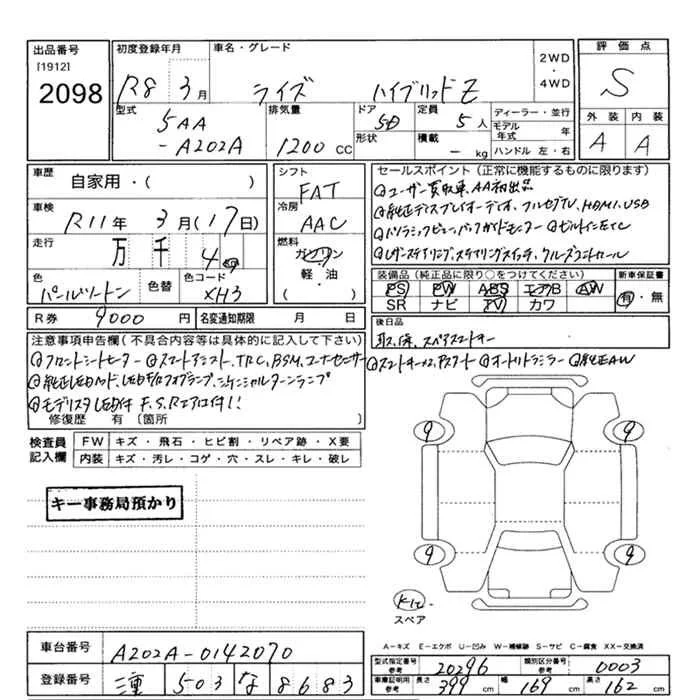 出品番号 初度登録年月 車名・グレード 2WD・4WD 評価点
[1912]
2098 R8 3月 ライズ ハイブリッドZ S
型式 排気量 ドア 定員 ディーラー・並行 外装 内装
5AA 1200CC 5D 5人 モデル年式 年 A A
-A202A 形状 積載 -kg ハンドル 左・右
車歴 シフト セールスポイント(正常に機能するものに限ります)
自家用・( ) FAT ①ユーザー買取車、AA初出品
車検 冷房 ②純正ディスプレイオーディオ、フルセグTV、HDMI、USB
R11年 3月(17日) AAC ③パノラミックビュー、バックガイドモニター ④ビルトインETC
走行 燃料 ⑤レザーステアリング、ステアリングスイッチ、クルーズコントロール
万 千 4km ガソリン 装備品(純正品に限り○をつけてください) 新車保証書
色 色替 色コード 軽・油 PS PW ABS エアB AW 有・無
パールツートン XH3 ( ) SR ナビ TV カワ
R券 9000円 名変通期限 月 日 後日品
注意事項申告欄(不具合内容等は具体的に記入して下さい) 取、保、スペアスマートキー
フロントシートヒーター スマートアシスト、TRC、BSM、コーナーセンサー スマートキーx2、Pスタート オートリトラミラー 純正AW
純正LEDヘッド、LEDF/Rフォグランプ、シーケンシャルターンランプ
モデリスタLED付 F、S、Rエアロ付!!
修復歴 有 〔箇所 〕
検査員 FW キズ・飛石・ヒビ割・リペア跡・X要
記入欄 内装 キズ・汚レ・コゲ・穴・スレ・キレ・破レ
キー事務局預かり
9 9
9 9
Kit
スペア
A-キズ E-エクボ U-凹み W-補修跡 S-サビ C-腐食 XX-交換済
車台番号 A202A-0142070 型式指定番号 参考 20296 類別区分番号 参考 0003
登録番号 三重 503 な 8683 車庫証明用 参考 長さ 399cm 幅 169cm 高さ 162cm